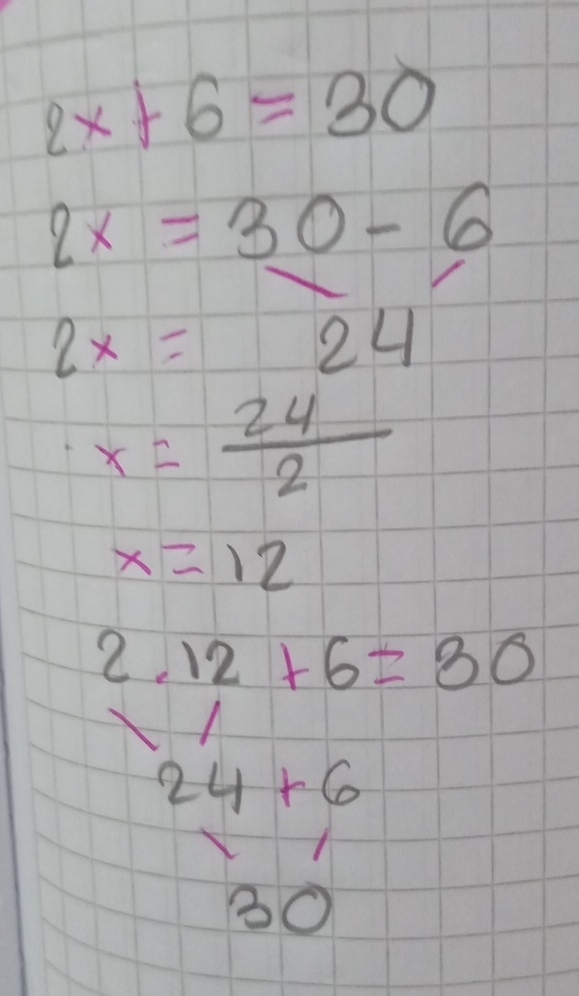 2x + 6 = 30
2x = 30 - 6
2x = 24
x = 24/2
x = 12
2 . 12 + 6 = 30
24 + 6
30